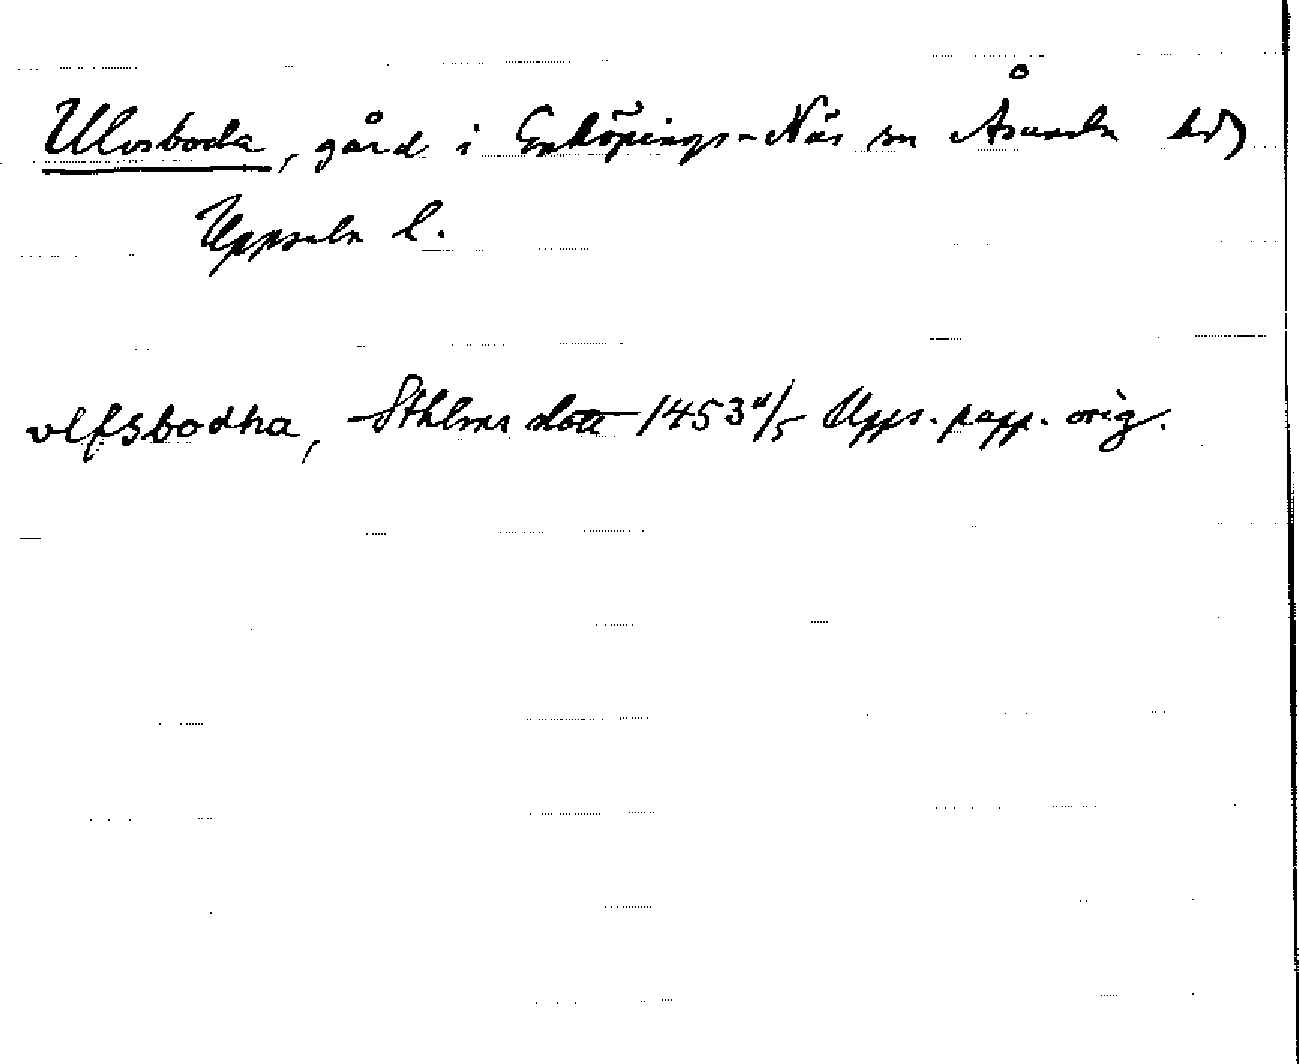 Ulvsboda, gård i Enköpings-Näs sn Åsunda hd
Uppsala l.
vlfsbodha, Sthlms slott 1453 4/5 Upps. papp. orig.